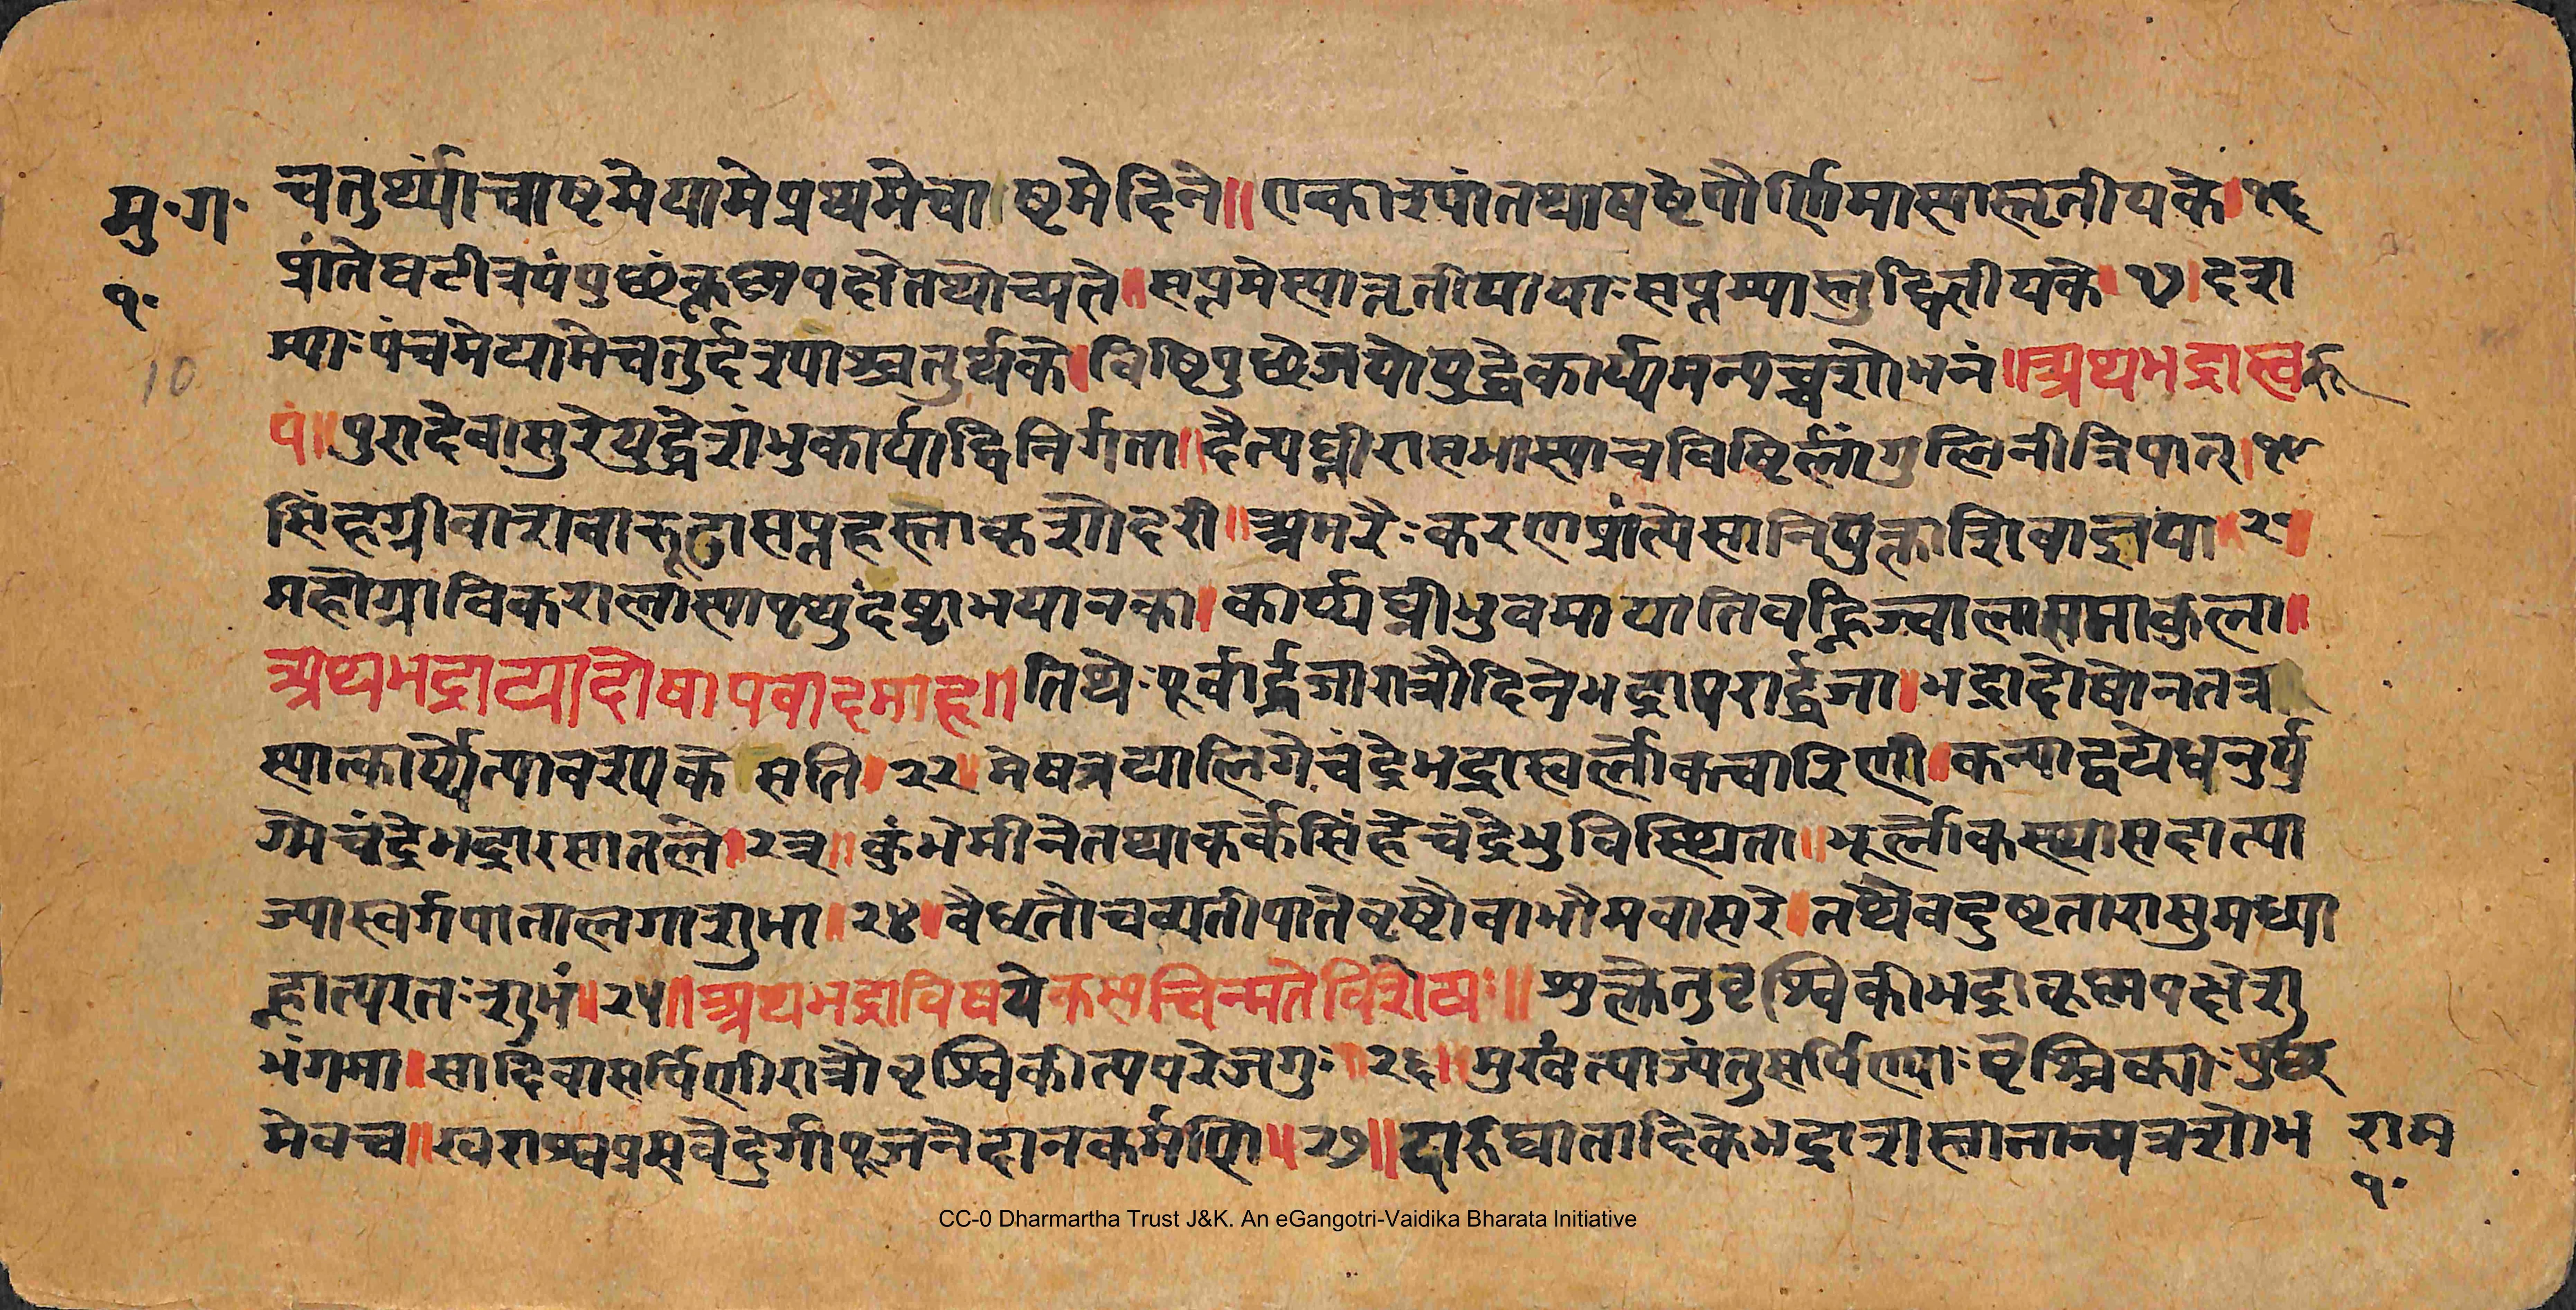 मु॰ग॰
१॰
10
चतुर्थ्यांचाष्टमेयामेप्रथमेचाष्टमेदिने॥एकादश्यांतथाषष्टेपौर्णिमास्यास्तृतीयके।१६
प्रांतेघटीत्रयंपुछंकृष्णपक्षेतथोच्यते।सप्तमेस्यातृतीयायाःसप्तम्यास्तुद्वितीयके।१७।दश
म्याःपंचमेयामेचतुर्दश्याश्चतुर्थके।विष्टिपुछेजयोयुद्धेकार्य्यमन्यच्चशोभनं॥अथभद्रास्वरू
पं॥पुरादेवासुरेयुद्धेशंभुकार्याद्विनिर्गता॥दैत्यघ्नीरासभास्याचविष्टिर्लांगुलिनीत्रिपात्।१९
सिंहग्रीवाशवारूढासप्तहस्ताकृशोदरी॥अमरैःकरणप्रांत्येसानियुक्ताशिवाज्ञया।२१॥
महोग्राविकरालास्यापृथुदंष्ट्राभयानका।कार्य्यघ्नीभुवमायातिवह्निज्वालासमाकुला॥
अथभद्राद्यादोषापवादमाह॥तिथेःपूर्वार्द्धजारात्रौदिनेभद्रापरार्द्धजा।भद्रादोषोनतत्र
स्यात्कार्य्येत्यावश्यकेसति।२२।मेषत्रयालिगेचंद्रेभद्रास्वर्लोकचारिणी।कन्याद्वयेधनुर्यु
ग्मेचंद्रेभद्रारसातले।२३॥कुंभेमीनेतथाकर्केसिंहेचंद्रेभुविस्थिता॥भूर्लोकस्थासदात्या
ज्यास्वर्गपातालगाशुभा॥२४।वैधृतौचव्यतीपातेवृष्टौवाभौमवासरे।तथैवदुष्टतारासुमध्या
ह्नात्परतःशुभं॥२५॥अथभद्राविषयेकस्यचिन्मतेविशेष्यः॥शुक्लेतुवृश्चिकीभद्राकृष्णपक्षेशु
भंगमा।सादिवासर्पिणीरात्रौवृश्चिकीत्यपरेजगुः॥२६॥मुखंत्याज्यंतुसर्पिण्याःवृश्चिक्याःपुछ
मेवच॥खराश्वप्रसवेदुर्गापूजनेदानकर्मणि॥२७॥दारुघातादिकेभद्राशस्तानान्यत्रशोभ
राम
१॰
CC-0 Dharmartha Trust J&K. An eGangotri-Vaidika Bharata Initiative